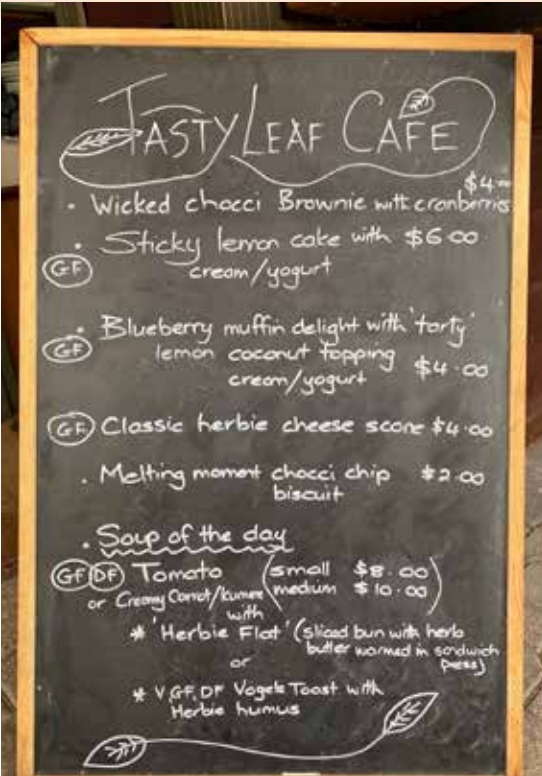 TASTY LEAF CAFE
$4.00
• Wicked chocci Brownie with cranberries
• Sticky lemon cake with $6.00
GF cream/yogurt
• Blueberry muffin delight with 'tarty'
GF lemon coconut topping
cream/yogurt $4.00
GF Classic herbie cheese scone $4.00
• Melting moment chocci chip $2.00
biscuit
• Soup of the day
GF DF Tomato (small $8.00
or Creamy Carrot/Kumera medium $10.00)
with
* 'Herbie Flat' (sliced bun with herb
butter warmed in sandwich
press)
or
* V, GF, DF Vogels Toast with
Herbie humus